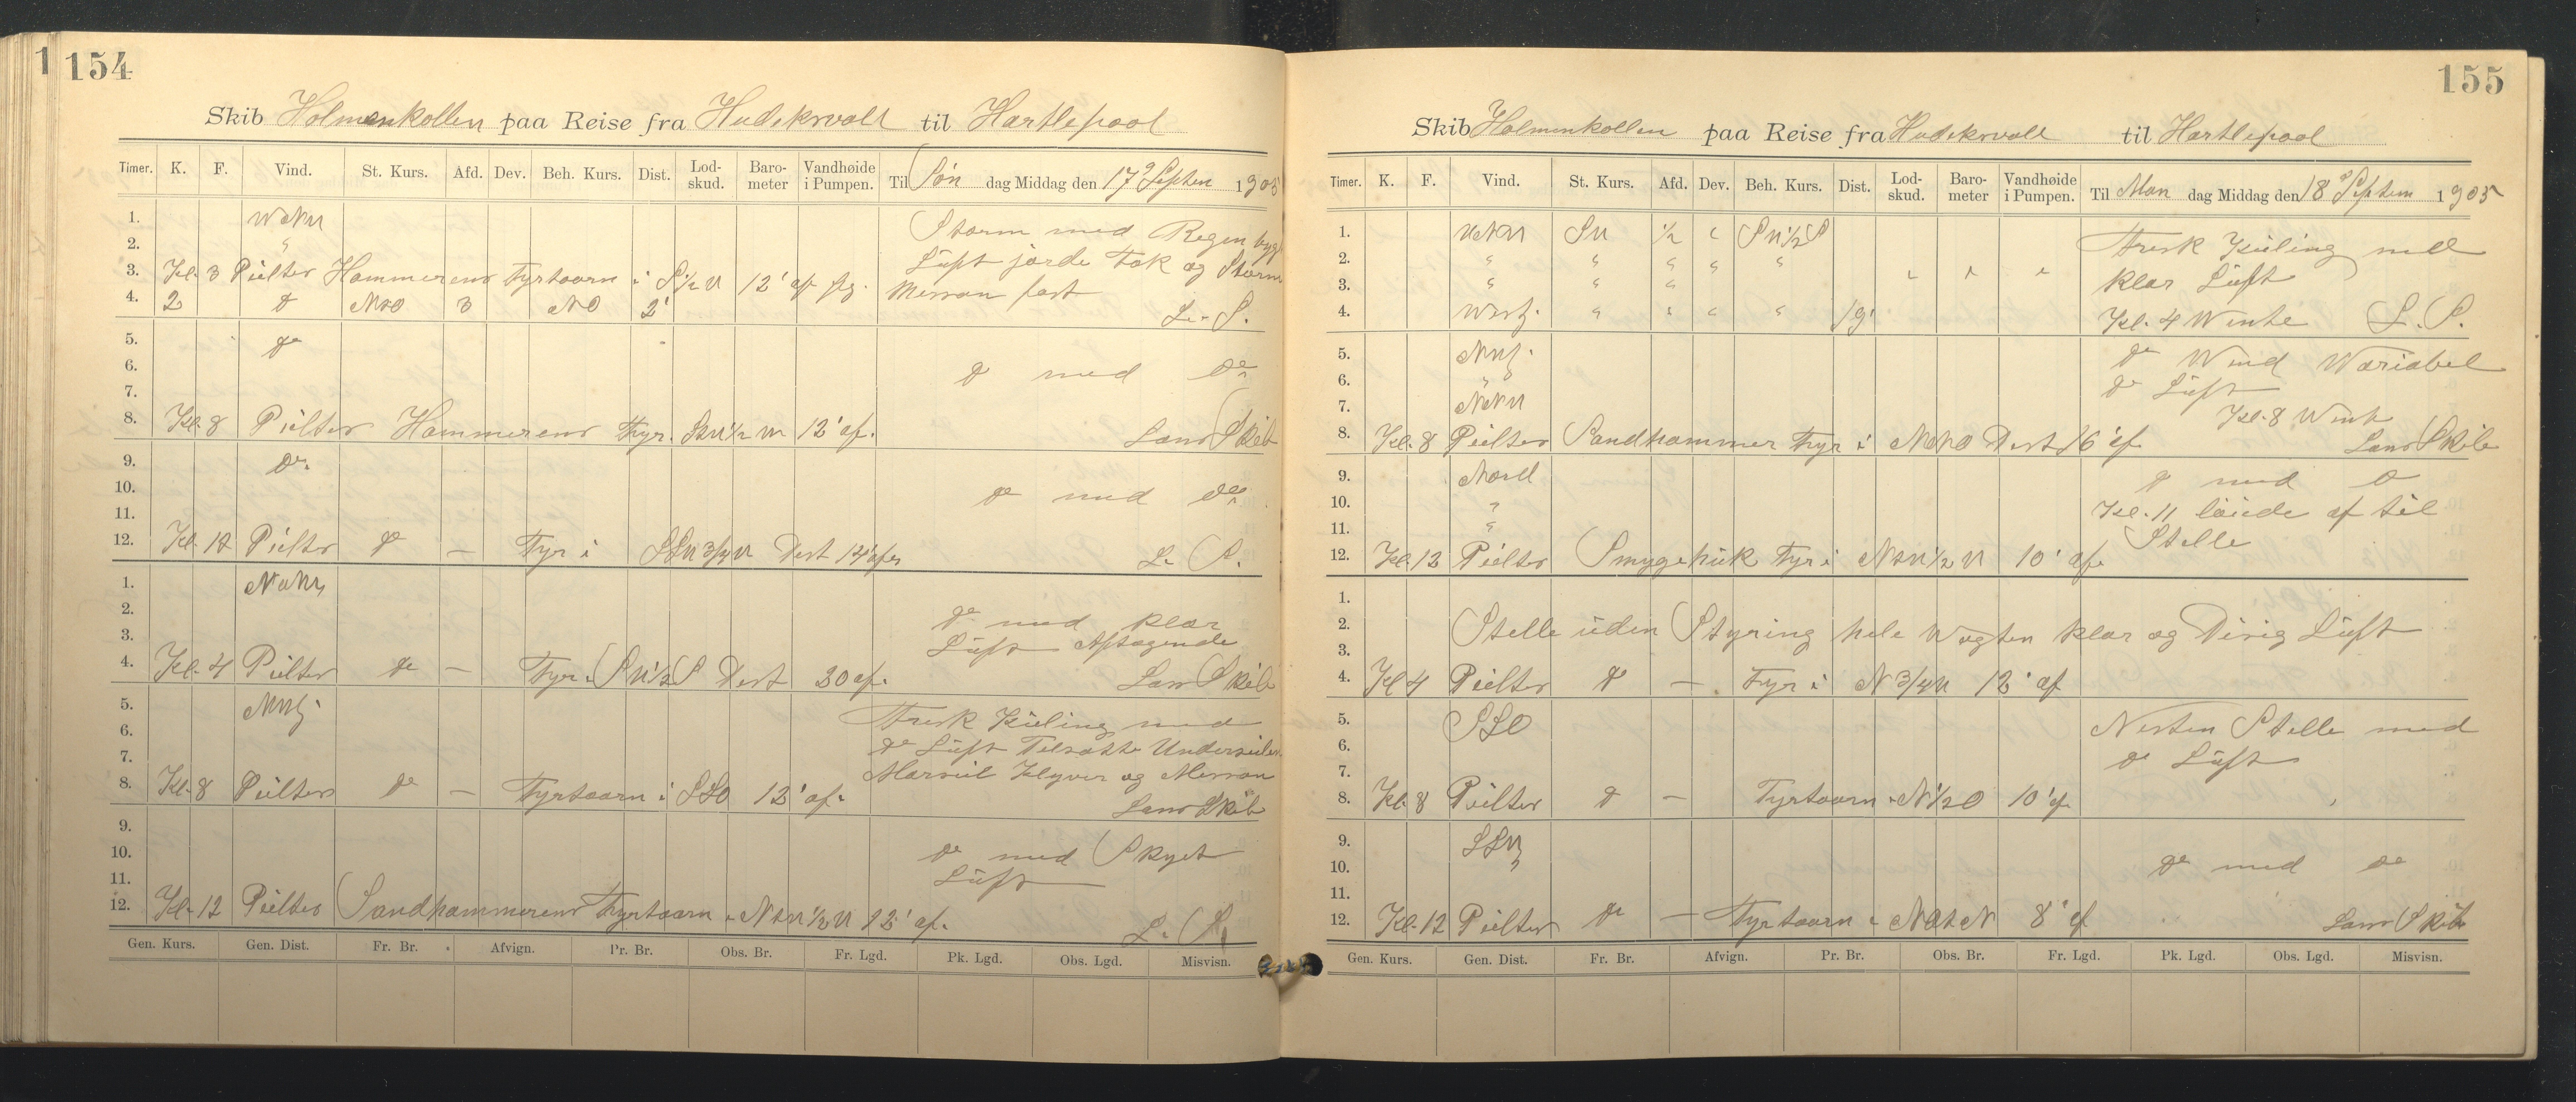 1
154
Skib Holmenkollen paa Reise fra Hudiksvall til Hartlepool
Timer. K. F. Vind. St. Kurs. Afd. Dev. Beh. Kurs. Dist. Lod-skud. Baro-meter Vandhøide i Pumpen. Til Søn dag Middag den 17 Septem 1905
1. Storm med Regen byge
2. Luft
3. Kl. 3 Peilter Hammerens Fyrtaarn i S 1/2 W 12' af
4. 2 NNO 3 NO 2' Messan fast L. S.
5. do
6. do med do
7.
8. Kl. 8 Peilter Hammerens Fyr. 12' af. Lans Skib
9. do
10. do med do
11.
12. Kl. 12 Peilter do — Fyr i Dist L. S.
1.
2. do med klar
3. Luft Aftagende
4. Kl. 4 Peilter do — Fyr i SW 1/2 S Dist af. Lans Skib
5. Frisk Kuling med
6. do Luft Tilsatte Underseiler
7. Marseil Klyver og Messan
8. Kl. 8 Peilter do — Fyrtaarn i SSO 12' af. Lans Skib
9.
10. do med Skyet
11. Luft
12. Kl. 12 Peilter Sandhammerens Fyrtaarn 12' af. L. S.
Gen. Kurs. Gen. Dist. Fr. Br. Afvign. Pr. Br. Obs. Br. Fr. Lgd. Pk. Lgd. Obs. Lgd. Misvisn.
155
Skib Holmenkollen paa Reise fra Hudiksvall til Hartlepool
Timer. K. F. Vind. St. Kurs. Afd. Dev. Beh. Kurs. Dist. Lod-skud. Baro-meter Vandhøide i Pumpen. Til Man dag Middag den 18 Septem 1905
1. WNW SW 1/2 " SW 1/2 S Frisk Kuling med
2. " " " " "
3. " " " klar Luft
4. " " " " 19' Kl. 4 Wente L. S.
5. do Wind Wariabel
6. " do Luft
7. NNW Kl. 8 Went
8. Kl. 8 Peilter Sandhammer Fyr i Dist 16' af Lans Skib
9. Nord do med do
10. " Kl. 11 løiede af til
11. " Stelle
12. Kl. 12 Peilter Smygehuk Fyr i 10' af.
1.
2. Stelle uden Styring hele Wagten klar og Disig Luft
3.
4. Kl 4 Peilter do — Fyr i N 3/4 W 12' af
5. SSO Nesten Stelle med
6. do Luft
7.
8. Kl. 8 Peilter do — Fyrtaarn i N 1/2 O 10' af
9. SSW
10. " do med do
11.
12. Kl. 12 Peilter do — Fyrtaarn i 8' af Lans Skib
Gen. Kurs. Gen. Dist. Fr. Br. Afvign. Pr. Br. Obs. Br. Fr. Lgd. Pk. Lgd. Obs. Lgd. Misvisn.